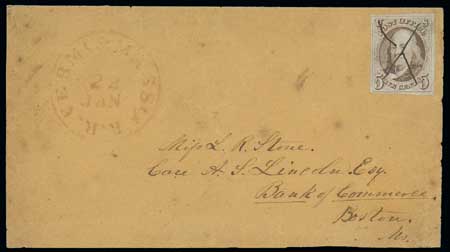 VERMT & MASSTS R.R.
24
JAN
POST OFFICE
5 5
FIVE CENTS
Miss L. R. Stone.
Care A. S. Lincoln Esq.
Bank of Commerce.
Boston.
Ms.